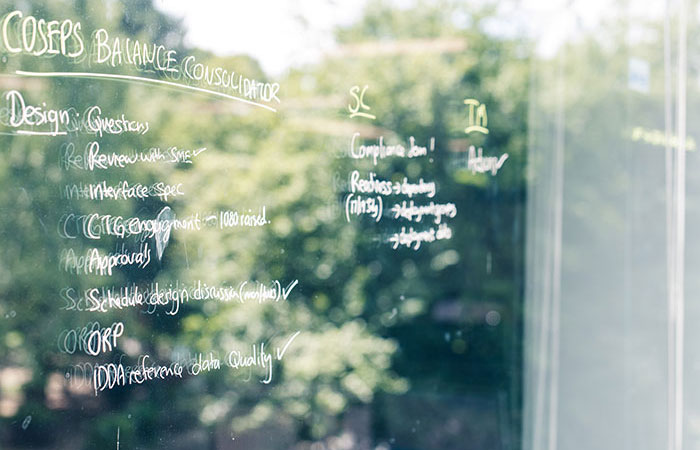 COSEPS BALANCE CONSOLIDATOR
Design:
Questions
Review with SME ✓
Interface Spec
CTG engagement - 1080 raised.
Approvals
Schedule design discussion ✓
ORP
IDDA reference data Quality ✓
SC
Compliance !
Readiness → dependency
→
→ deployment
IA
✓